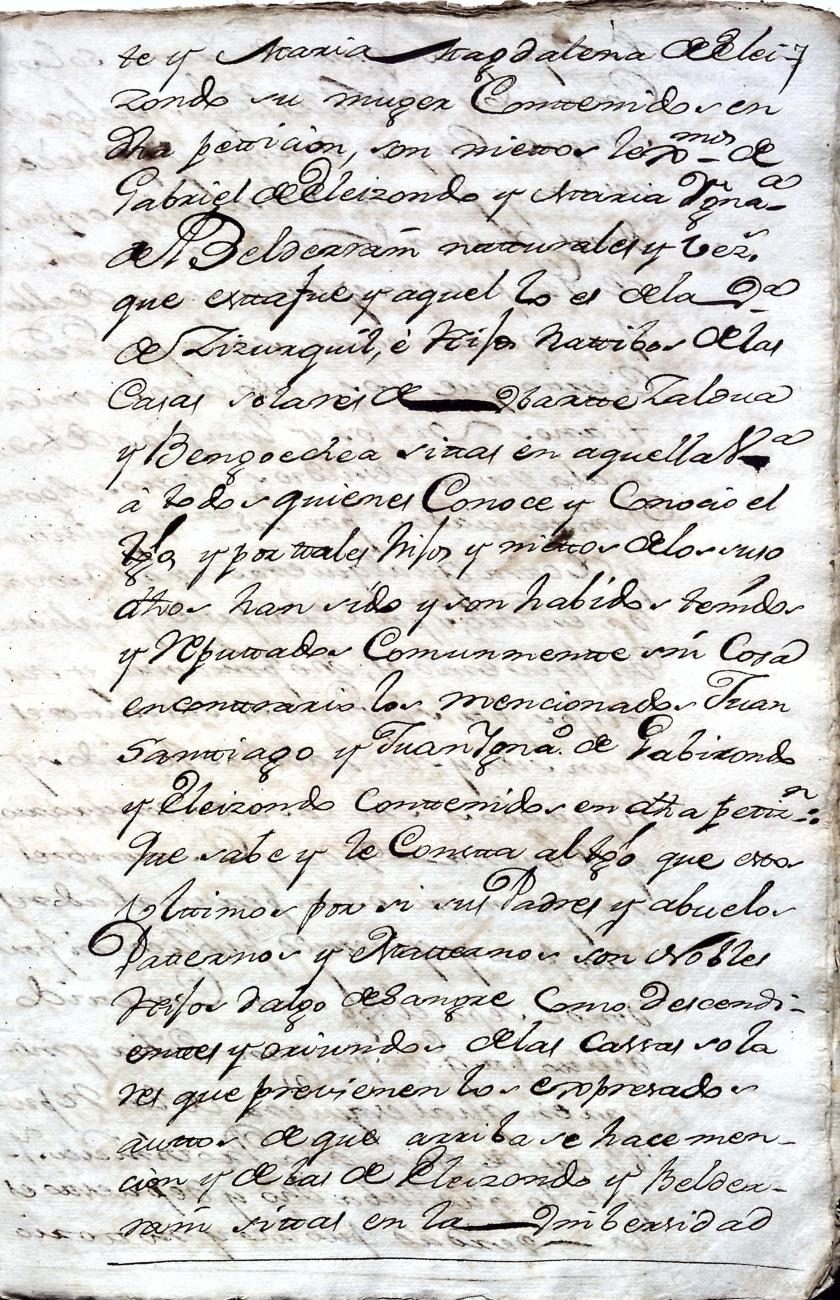 te y Maria Magdalena de Elei-
zondo su muger Contenidos en
dha petticion, son niettos lexmos de
Gabriel de Eleizondo y Maria Ygna.a
de Belderrain natturales y Vez.s
que estta fue y aquel lo es de la V.a
de Zizurquil, é Hijos nattibos de las
Casas solares de Ybartte Zaldua
y Bengoechea sittas en aquella V.a
à todos quienes Conoce y Conocio el
ttgo, y por ttales hijos y niettos de los suso
dhos han sido y son habidos tenidos
y Reputtados Comunmentte sin Cosa
en conttrario los mencionados Juan
Santtiago y Juan Ygna.o de Gabirondo
y Eleizondo Conttenidos en dha pettiz.n:
Que sabe y le Constta al ttgo que esttos
Ulttimos por si sus Padres y abuelos
Patternos y Matternos son Nobles
Hijos dalgo de Sangre Como Descendi-
enttes y oriundos de las Cassas sola
res que previenen los expresados
auttos de que arriba se hace men-
cion y de las de Eleizondo y Belder-
rain sittas en la Unibersidad